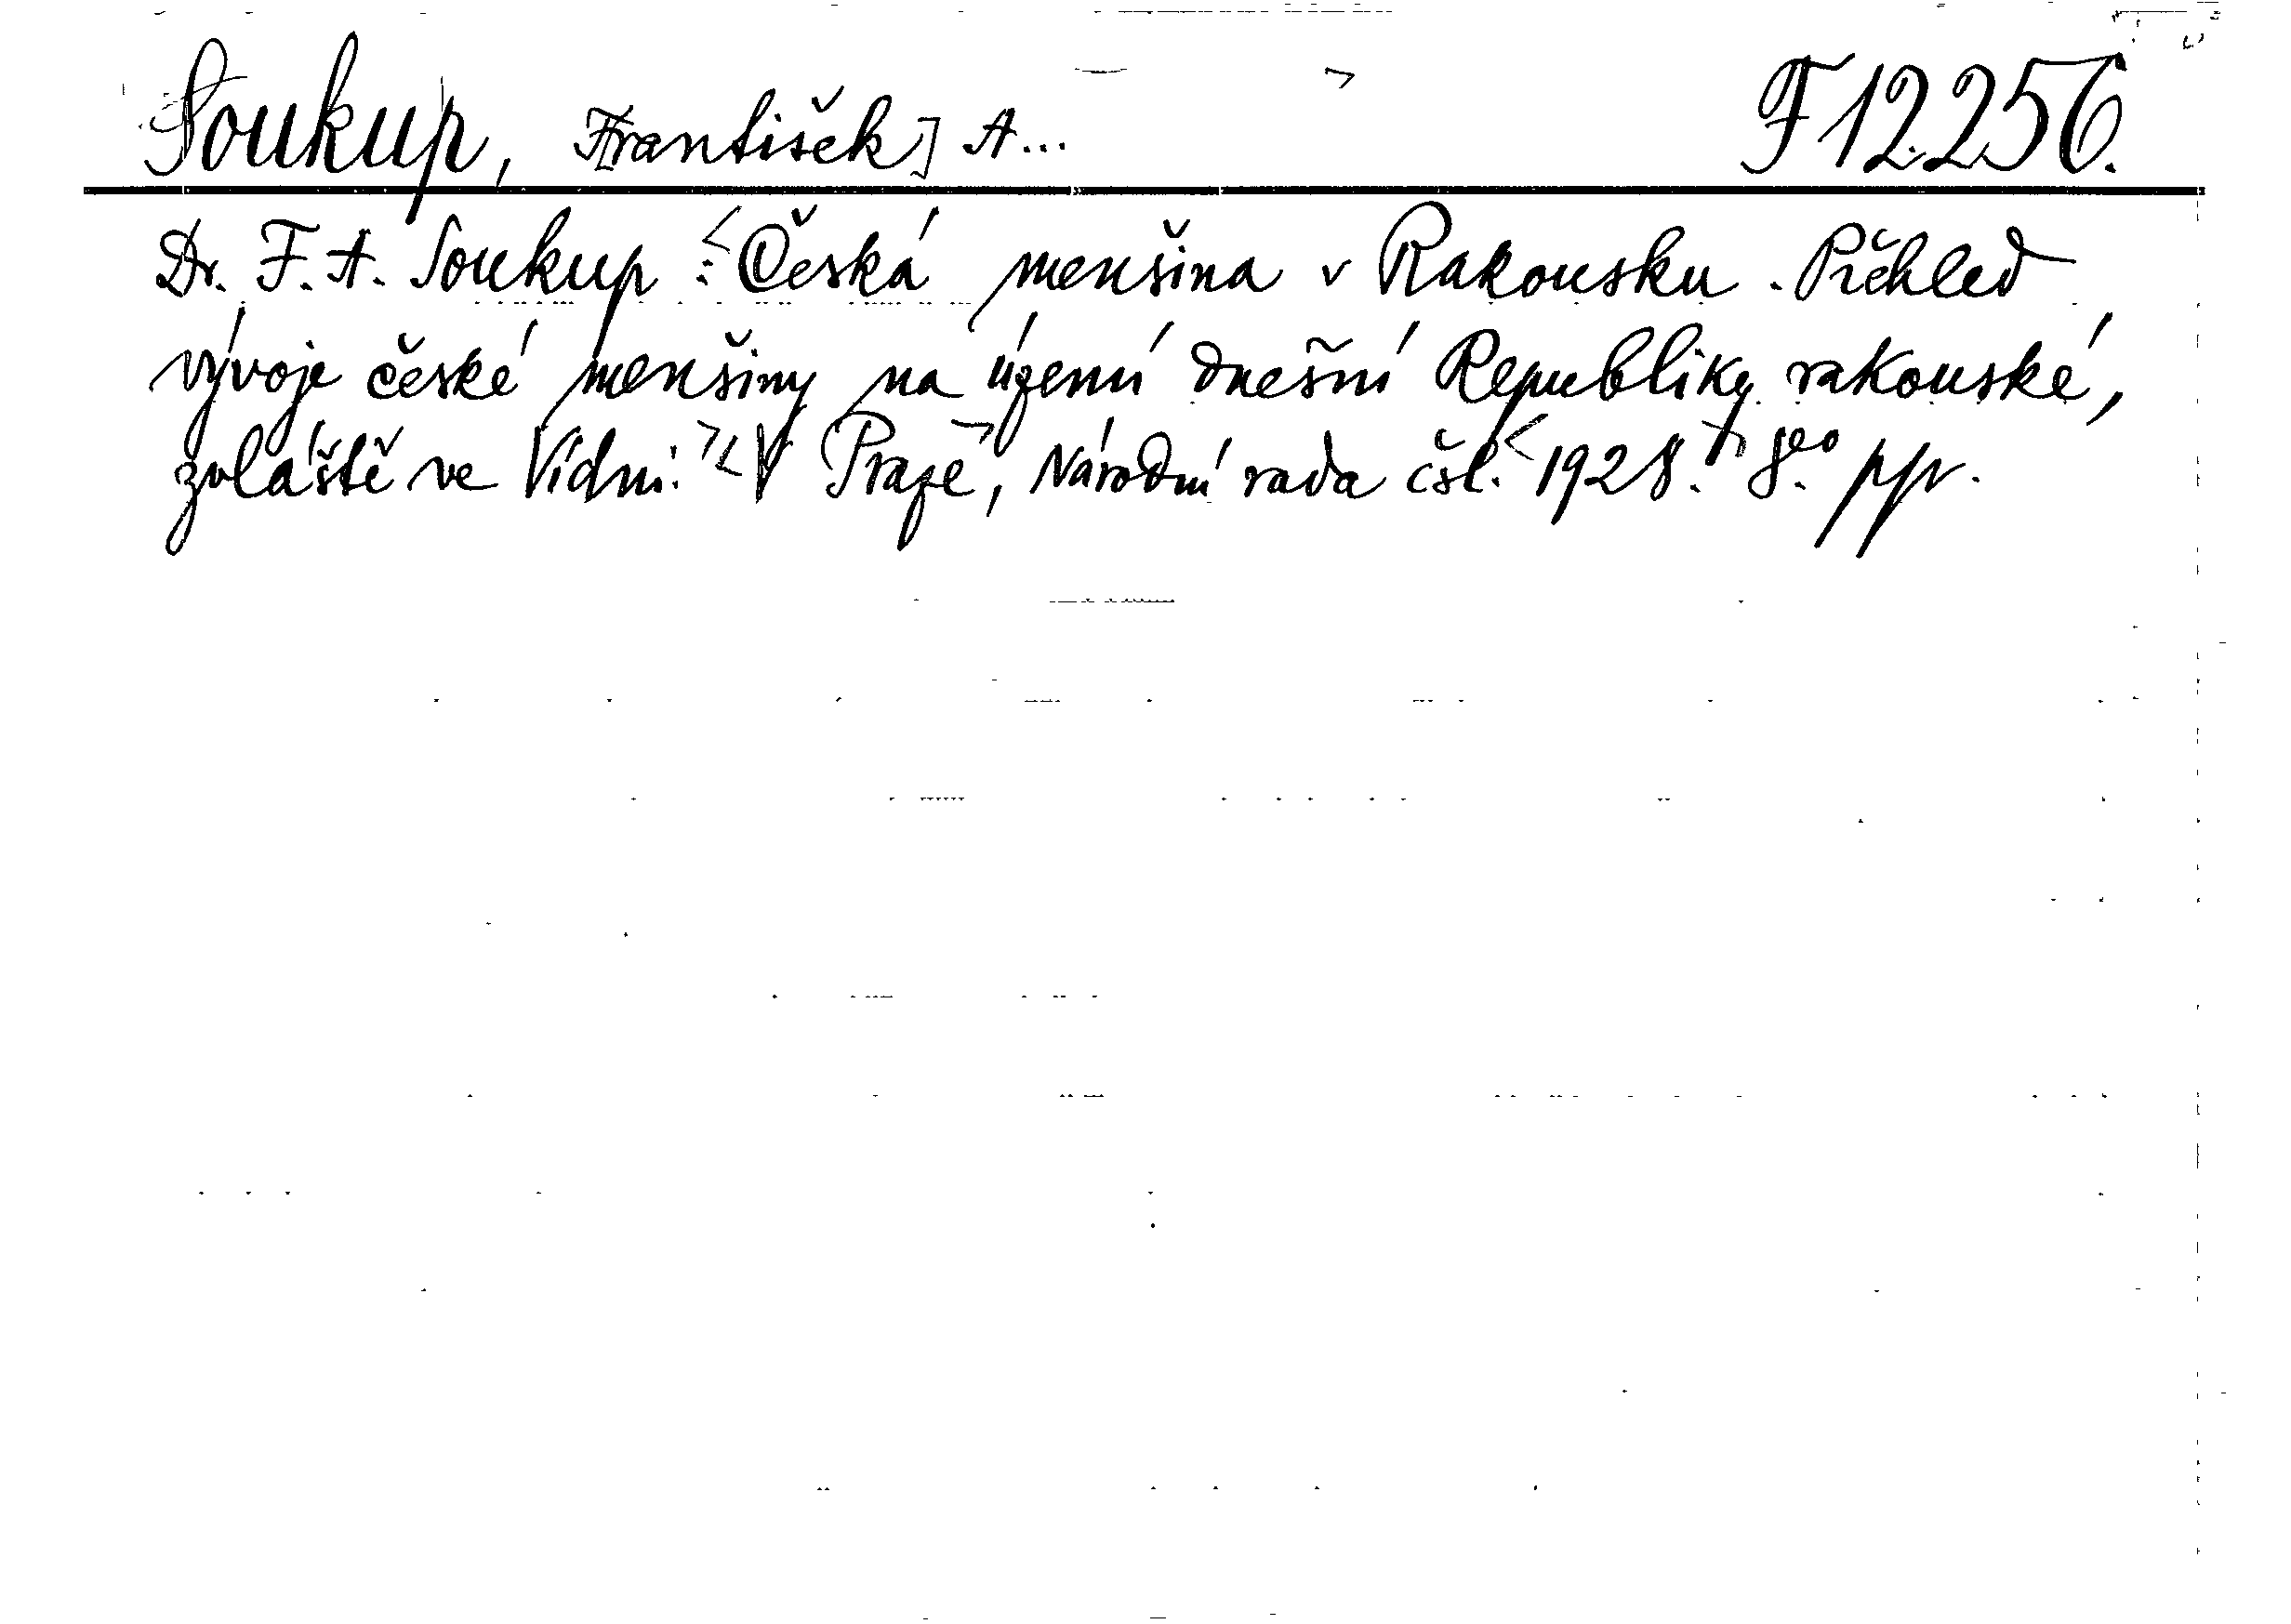 Soukup, F[rantišek] A... F 12.256.
Dr. F. A. Soukup : <Česká menšina v Rakousku. Přehled
vývoje české menšiny na území dnešní Republiky rakouské,
zvláště ve Vídni.> <V Praze>, Národní rada čsl. <1928.> 8.º ppv.